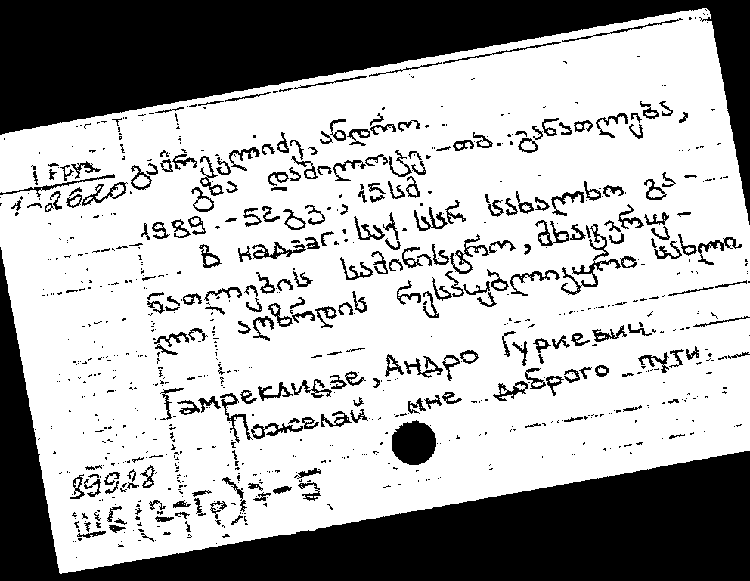 1 Груз
1-2620
გამრეკლიძე, ანდრო.
გზა დამილოცე. - თბ.: განათლება,
1989. - 52 გვ.; 15 სმ.
В надзаг.: საქ. სსრ სახალხო გა-
ნათლების სამინისტრო, მხატვრუ-
ლი აღზრდის რესპუბლიკური სახლი
Гамреклидзе, Андро Гуриевич.
Пожелай мне доброго пути.
89928
Ш6(2=Гр)7-5